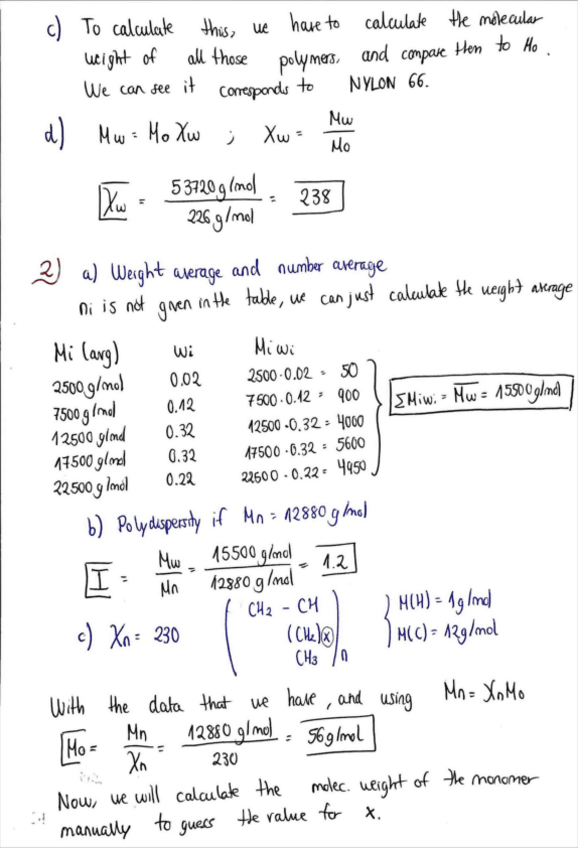 c) To calculate this, we have to calculate the molecular
weight of all those polymers, and compare them to Mo.
We can see it corresponds to NYLON 66.
d) Mw = Mo Xw ; Xw = Mw / Mo
Xw = 53720 g/mol / 226 g/mol = 238
2) a) Weight average and number average
ni is not given in the table, we can just calculate the weight average
Mi (avg) wi Mi wi
2500 g/mol 0.02 2500·0.02 = 50
7500 g/mol 0.12 7500·0.12 = 900
12500 g/mol 0.32 12500·0.32 = 4000
17500 g/mol 0.32 17500·0.32 = 5600
22500 g/mol 0.22 22500·0.22 = 4950
ΣMiwi = Mw = 15500 g/mol
b) Polydispersity if Mn = 12880 g/mol
I = Mw / Mn = 15500 g/mol / 12880 g/mol = 1.2
c) Xn = 230 ( CH2 - CH (CH2)x CH3 )n } M(H) = 1g/mol M(C) = 12g/mol
With the data that we have, and using Mn = XnMo
Mo = Mn / Xn = 12880 g/mol / 230 = 56g/mol
Now, we will calculate the molec. weight of the monomer
manually to guess the value for x.